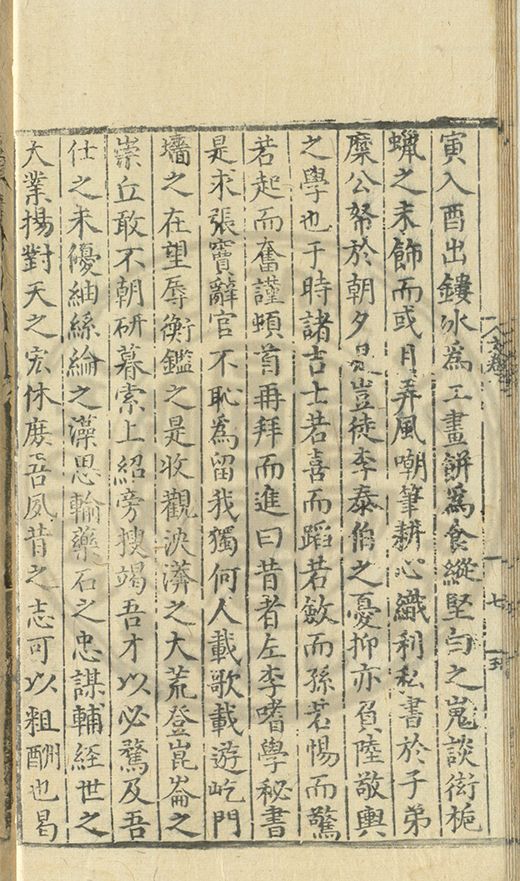 寅入酉出鏤冰為工畫餅為食縱堅白之嵬談衒梔
蠟之末飾而或月弄風嘲筆耕心織利私書於子弟
糜公帑於朝夕是豈徒李泰伯之憂抑亦負陸敬輿
之學也于時諸吉士若喜而蹈若敏而孫若惕而驚
若起而奮謹頓首再拜而進曰昔者左李嗜學秘書
是求張竇辭官不恥為留我獨何人載歌載遊屹門
墻之在望辱衡鑑之是收觀泱漭之大荒登崑崙之
崇丘敢不朝研暮索上紹旁搜竭吾才以必騖及吾
仕之未優紬絲綸之藻思輸藥石之忠謀輔經世之
大業揚對天之宏休庶吾夙昔之志可以粗酬也曷
文卷
七